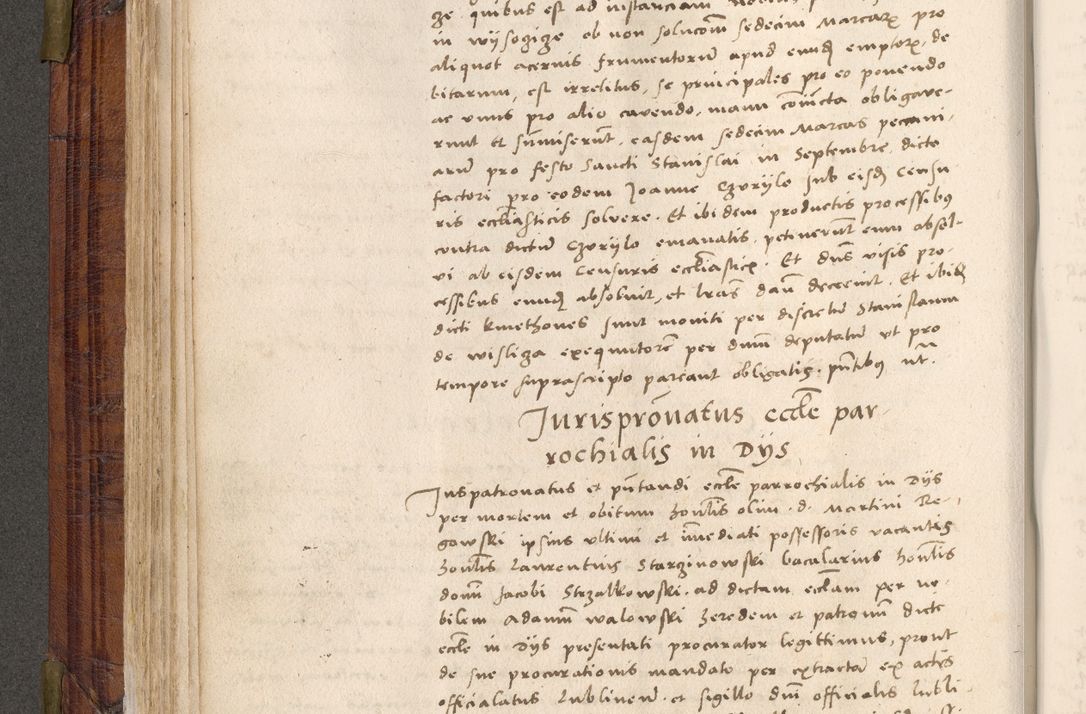 ge quibus est ad instanciam
in wysogige ob non solucom̄ sedecim Marcarꝝ pro
aliquot acervis frumentorum apud eundē emptorꝝ, de
bitarum, est irretitus, se principales pro eo ponendo
ac unus pro alio cavendo, manu coniūcta obligave-
runt et sūmiserūt, easdem sedecim Marcas pecuni-
arū pro festo Sancti Stanislai in Septembre, dicto
factori pro eodem Joanne Gzryilo sub eisdē Censu
ris eccliāsticis solvere. Et ibidem productis processibus
contra dictū Gzryilo emanatis, petiverūt eum absol-
vi ab eisdem Censuris eccliāsticꝭ. Et dnūs visis pro-
cessibus eundē absolvit, et lrās dari decrevit. Et ibidē
dicti kmethones sunt moniti per discretū Stanislaum
de wisliga exequutorē per dnūm deputatū ut pro
tempore suprascripto pareant obligatis, pn̄tibus ut.
Jurisprōnatus eccle par-
rochialis in Dys
Juspatronatus et pn̄tandi eccle parrochialis in Dys
per mortem et obitum honlis olim. d. Martini Re-
gowski ipsius ultimi et īmediati possessoris vacantis
honlis Laurentius Starginowski bacalarius honlis
domī Jacobi Strzalkowski, ad dictam eccliam per no-
bilem Adamū walowski heredem et patronū dicte
eccle in Dys presentati procurator legittimus, prout
de sue procurationis mandato per extractā ex actis
officialatus Lublineñ. et sigillo dnī officialis lubli-